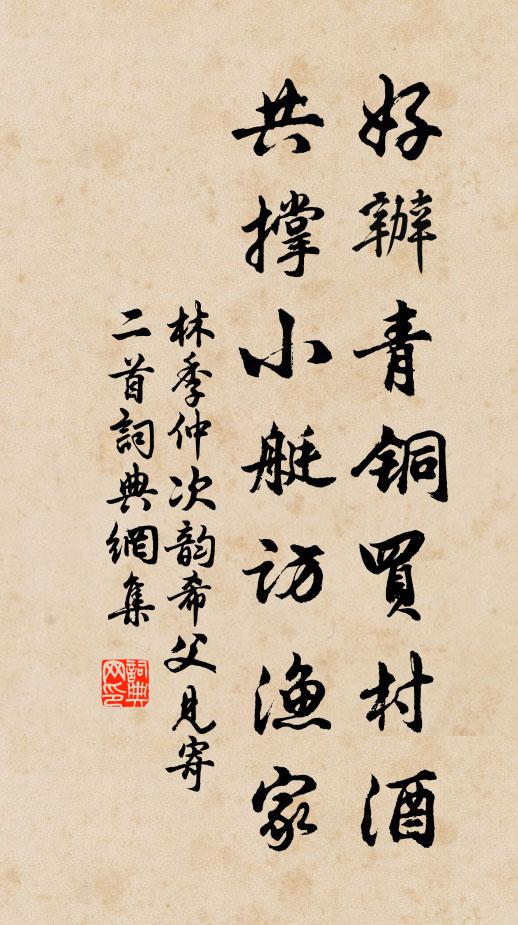 好辦青銅買村酒
共撐小艇訪漁家
林季仲次韵希父見寄
二首詞典網集
詞典
网印